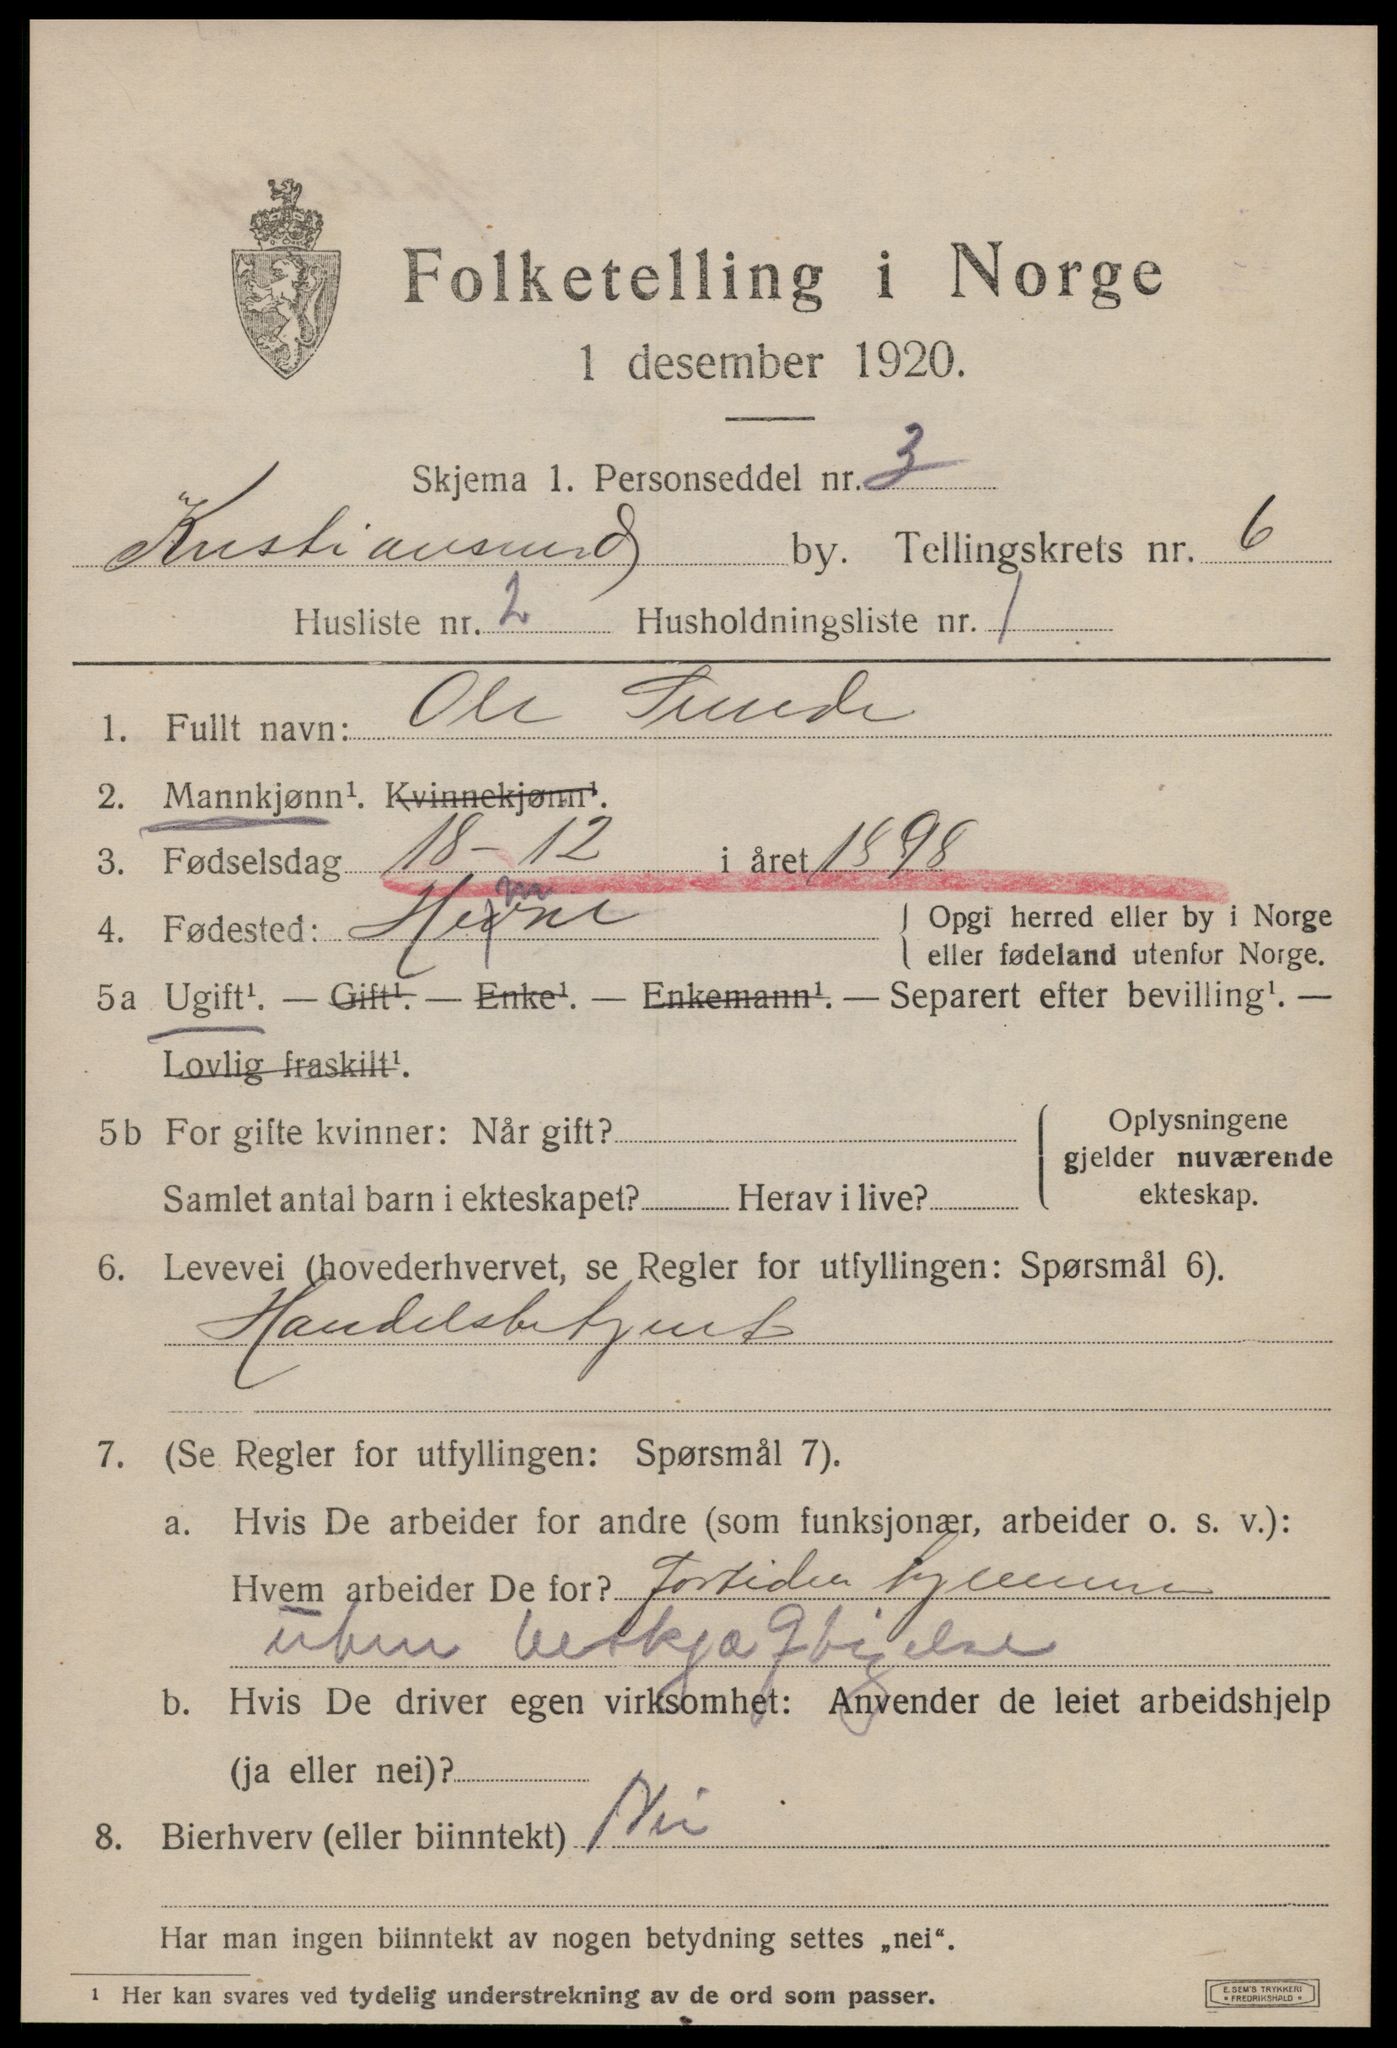 Folketelling i Norge
1 desember 1920.
Skjema 1. Personseddel nr. 3
Kristiansund by. Tellingskrets nr. 6
Husliste nr. 2 Husholdningsliste nr. 1
1. Fullt navn: Ole
2. Mannkjønn¹. Kvinnekjønn¹.
3. Fødselsdag 18-12 i året 1898
4. Fødested: Opgi herred eller by i Norge
eller fødeland utenfor Norge.
5a Ugift¹. — Gift¹. — Enke¹. — Enkemann¹. — Separert efter bevilling¹. —
Lovlig fraskilt¹.
5b For gifte kvinner: Når gift? Oplysningene
gjelder nuværende
Samlet antal barn i ekteskapet? Herav i live? ekteskap.
6. Levevei (hovederhvervet, se Regler for utfyllingen: Spørsmål 6).
Handelsbetjent
7. (Se Regler for utfyllingen: Spørsmål 7).
a. Hvis De arbeider for andre (som funksjonær, arbeider o. s. v.):
Hvem arbeider De for? Fortiden hjemme
uten beskjæftigelse
b. Hvis De driver egen virksomhet: Anvender de leiet arbeidshjelp
(ja eller nei)?
8. Bierhverv (eller biinntekt) Nei
Har man ingen biinntekt av nogen betydning settes „nei“.
¹ Her kan svares ved tydelig understrekning av de ord som passer.
E. SEM'S TRYKKERI
* FREDRIKSHALD *